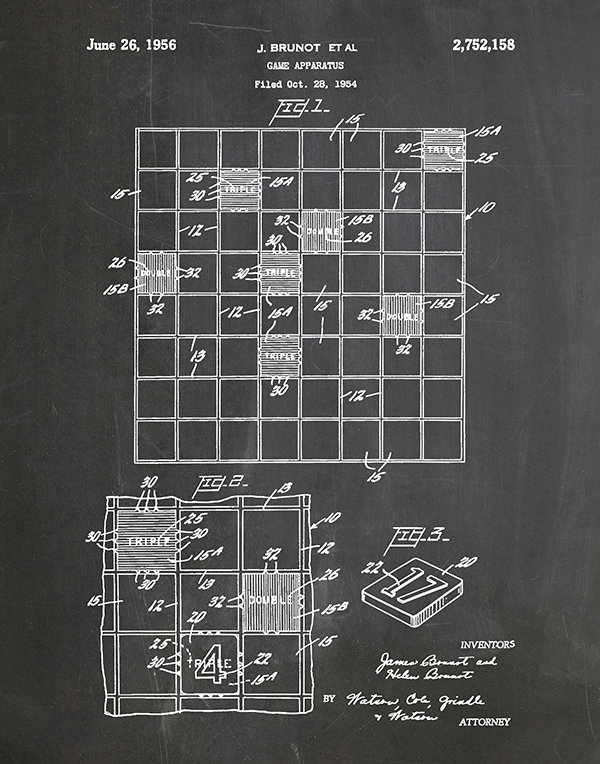 June 26, 1956
J. BRUNOT ET AL
2,752,158
GAME APPARATUS
Filed Oct. 28, 1954
FIG. 1.
15
15A
30
TRIPLE
25
25
15A
15
30
TRIPLE
13
10
32
15B
12
DOUBLE
26
30
26
DOUBLE
32
30
TRIPLE
15B
32
15
15B
15
12
15A
32
DOUBLE
32
13
TRIPLE
30
12
15
FIG. 2.
30
13
25
10
30
TRIPLE
30
12
15A
30
13
32
26
15
12
32
DOUBLE
15B
20
25
15
30
TRIPLE
4
22
15A
FIG. 3.
22
17
20
INVENTORS
James Brunot and
Helen Brunot
BY Watson, Cole, Grindle
& Watson
ATTORNEY